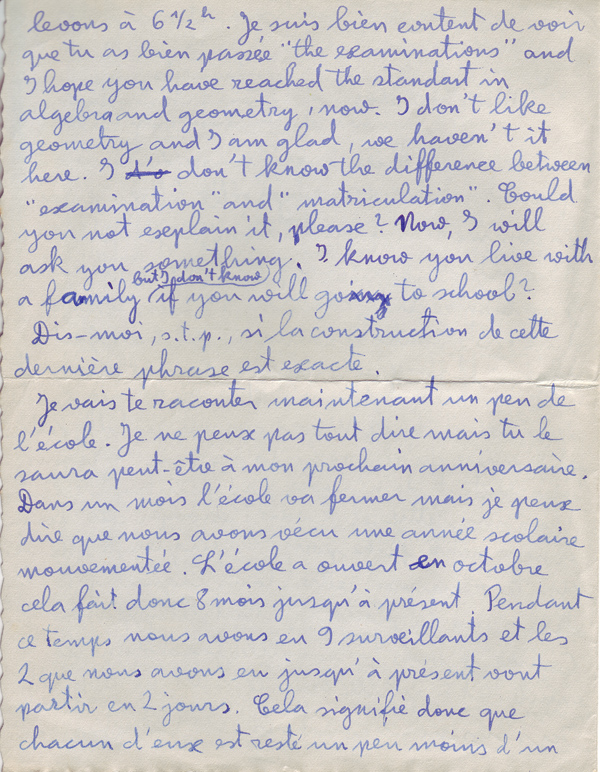 levons à 6 1/2 h. Je suis bien content de voir
que tu as bien passée "the examinations" and
I hope you have reached the standart in
algebra and geometry, now. I don't like
geometry and I am glad, we haven't it
here. I don't know the difference between
"examination" and "matriculation". Could
you not explain it, please? Now, I will
ask you something. I know you live with
but I don't know
a family if you will go to school?
Dis-moi, s.t.p., si la construction de cette
dernière phrase est exacte.
Je vais te raconter maintenant un peu de
l'école. Je ne peux pas tout dire mais tu le
saura peut-être à mon prochain anniversaire.
Dans un mois l'école va fermer mais je peux
dire que nous avons vécu une année scolaire
mouvementée. L'école a ouvert en octobre
cela fait donc 8 mois jusqu'à présent. Pendant
ce temps nous avons eu 9 surveillants et les
2 que nous avons eu jusqu'à présent vont
partir en 2 jours. Cela signifie donc que
chacun d'eux est resté un peu moins d'un